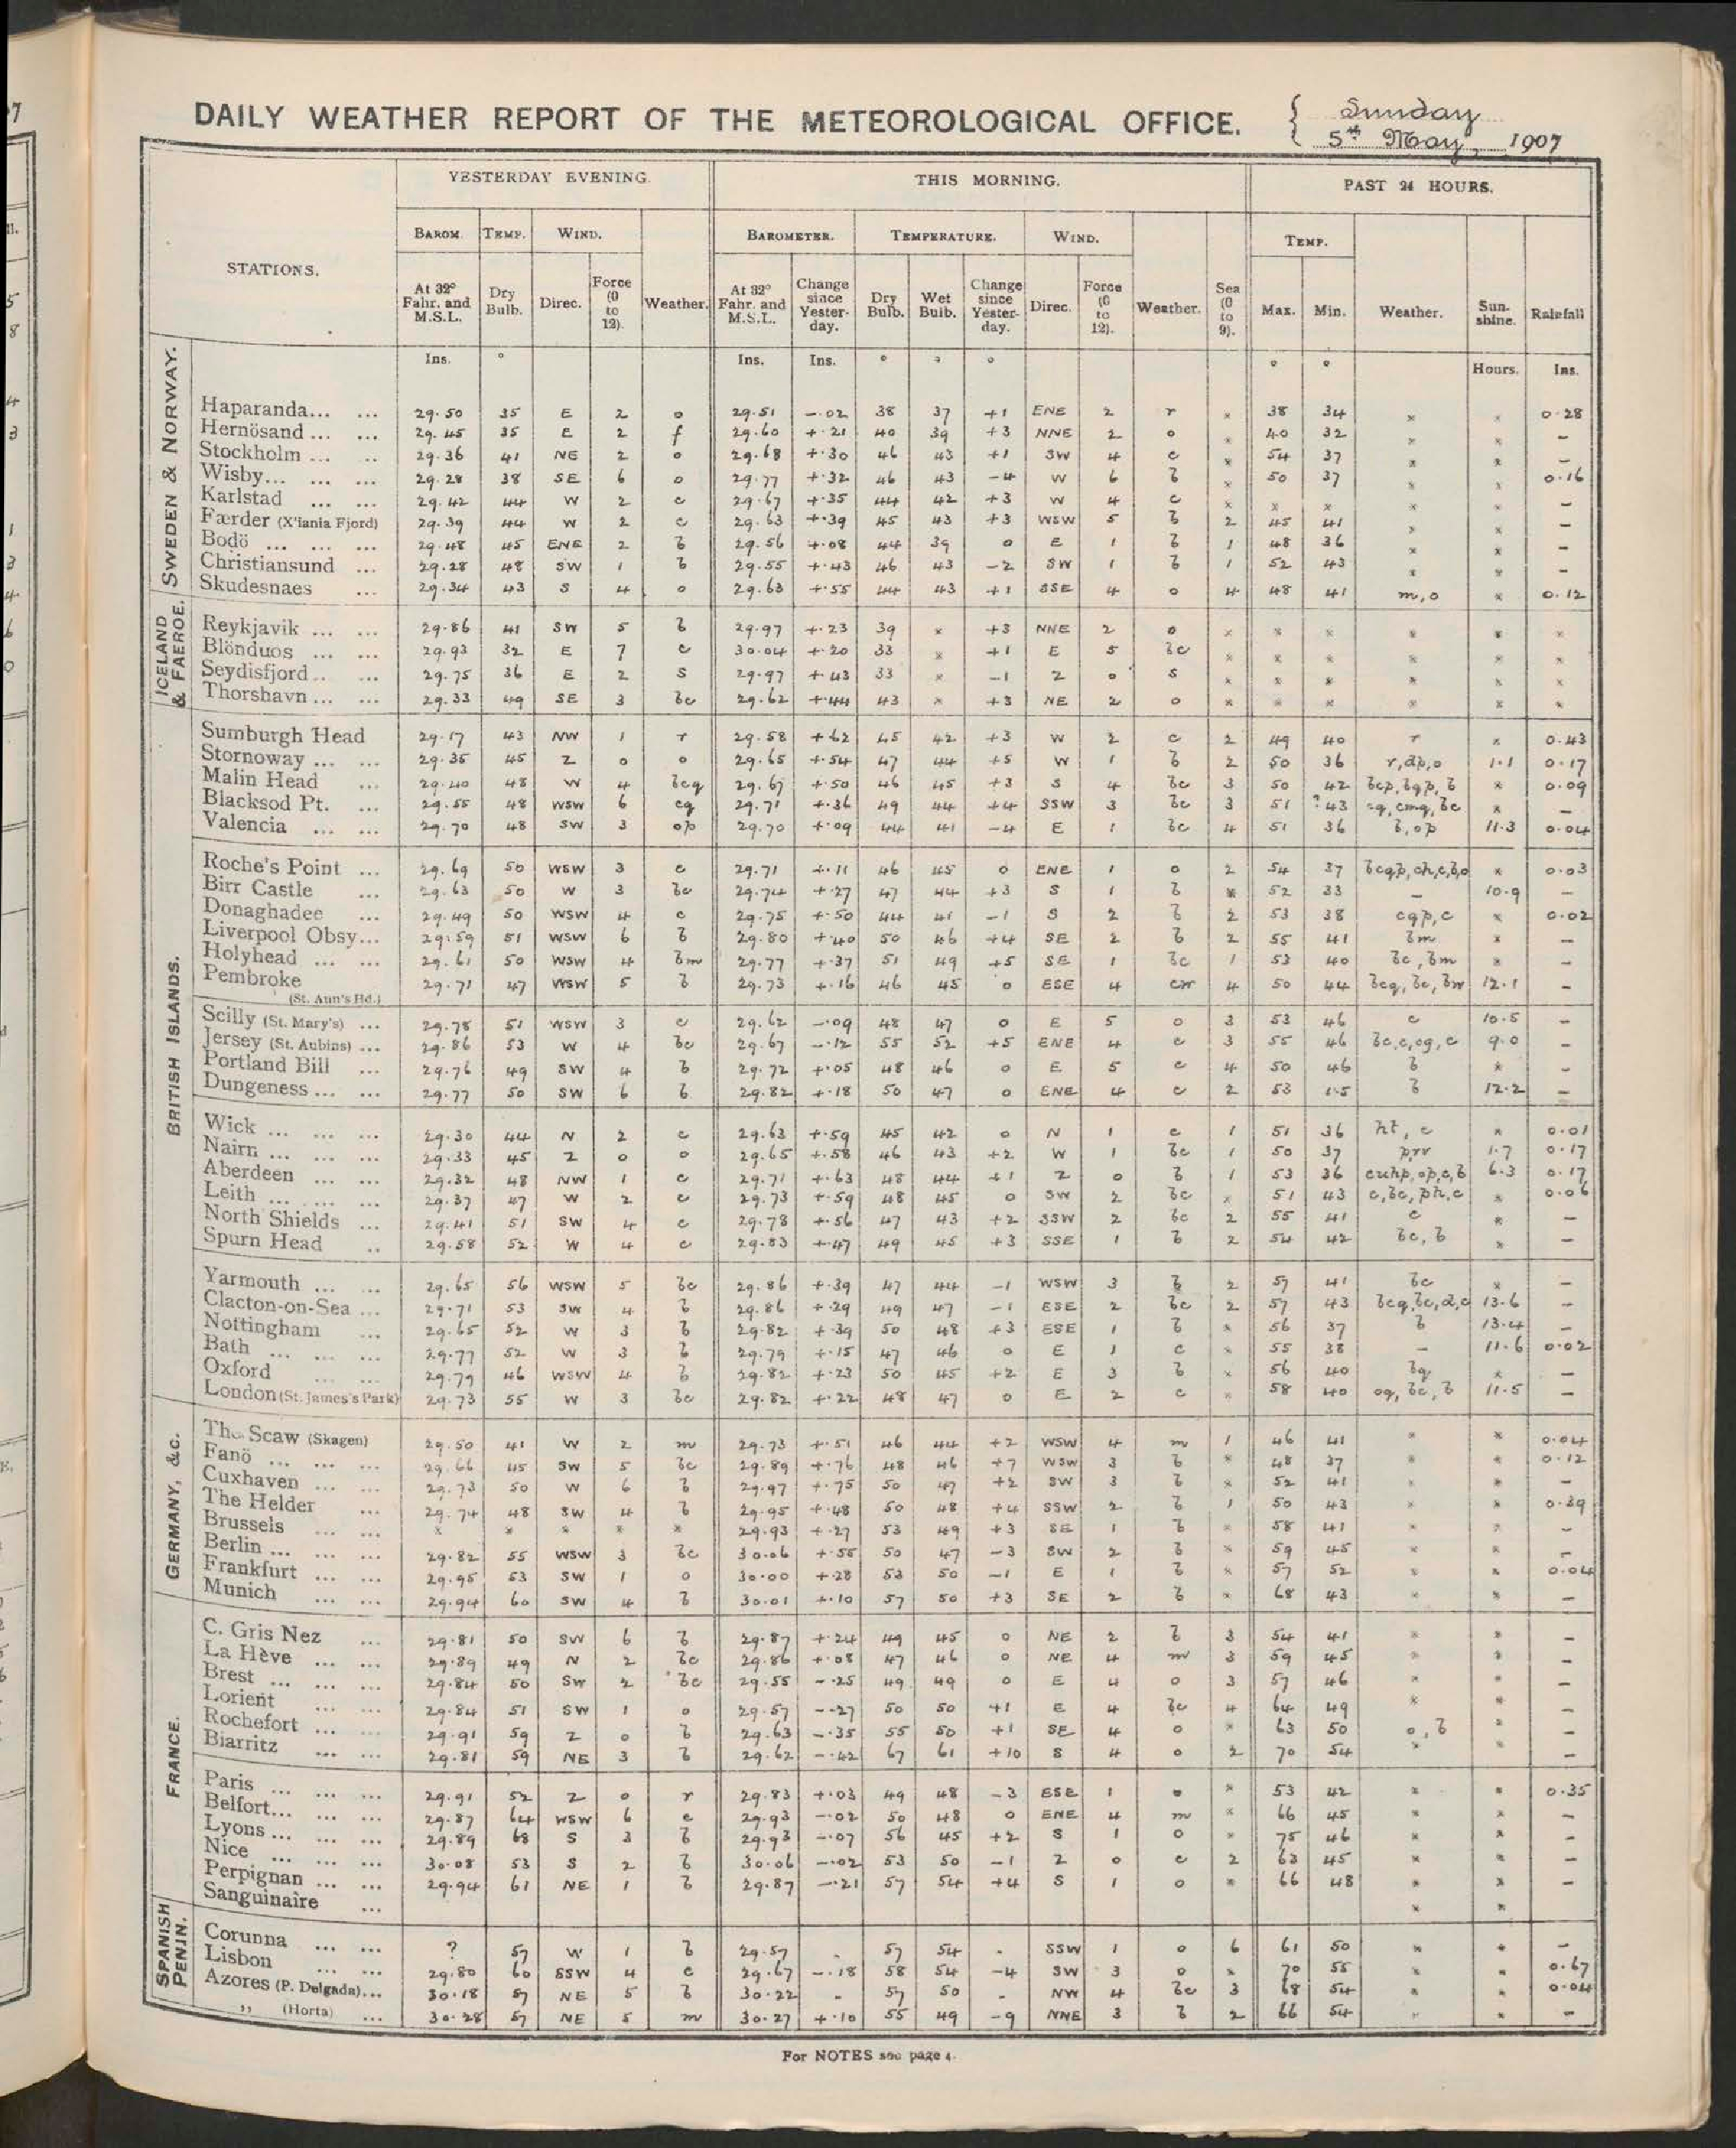 DAILY WEATHER REPORT OF THE METEOROLOGICAL OFFICE. { Sunday
5th May, 1907
YESTERDAY EVENING. THIS MORNING. PAST 24 HOURS.
STATIONS. BAROM. TEMP. WIND. BAROMETER. TEMPERATURE. WIND. TEMP.
At 32° Fahr. and M.S.L. Dry Bulb. Direc. Force (0 to 12). Weather. At 32° Fahr. and M.S.L. Change since Yester-day. Dry Bulb. Wet Bulb. Change since Yester-day. Direc. Force (0 to 12). Weather. Sea (0 to 9). Max. Min. Weather. Sun-shine. Rainfall
Ins. ° Ins. Ins. ° ° ° ° ° Hours. Ins.
SWEDEN & NORWAY.
Haparanda... ... 29.50 35 E 2 o 29.51 -.02 38 37 +1 ENE 2 r × 38 34 × × 0.28
Hernösand ... ... 29.45 35 E 2 f 29.60 +.21 40 39 +3 NNE 2 o × 40 32 × × -
Stockholm ... .. 29.36 41 NE 2 o 29.68 +.30 46 43 +1 SW 4 c × 54 37 × × -
Wisby... ... ... 29.28 38 SE 6 o 29.77 +.32 46 43 -4 W 6 b × 50 37 × × 0.16
Karlstad ... ... 29.42 44 W 2 c 29.67 +.35 44 42 +3 W 4 c × × × × × -
Færder (X'iania Fjord) 29.39 44 W 2 c 29.63 +.39 45 43 +3 WSW 5 b 2 45 41 × × -
Bodö ... ... ... 29.48 45 ENE 2 b 29.56 +.08 44 39 0 E 1 b 1 48 36 × × -
Christiansund ... 29.28 48 SW 1 b 29.55 +.43 46 43 -2 SW 1 b 1 52 43 × × -
Skudesnaes ... 29.34 43 S 4 o 29.63 +.55 44 43 +1 SSE 4 o 4 48 41 m,o × 0.12
ICELAND & FAEROE.
Reykjavik ... ... 29.86 41 SW 5 b 29.97 +.23 39 × +3 NNE 2 o × × × × × ×
Blönduos ... ... 29.93 32 E 7 c 30.04 +.20 33 × +1 E 5 bc × × × × × ×
Seydisfjord .. ... 29.75 36 E 2 s 29.97 +.43 33 × -1 Z 0 s × × × × × ×
Thorshavn ... ... 29.33 49 SE 3 bc 29.62 +.44 43 × +3 NE 2 o × × × × × ×
BRITISH ISLANDS.
Sumburgh Head 29.17 43 NW 1 r 29.58 +.62 45 42 +3 W 2 c 2 49 40 r × 0.43
Stornoway ... ... 29.35 45 Z 0 o 29.65 +.54 47 44 +5 W 1 b 2 50 36 r,dp,o 1.1 0.17
Malin Head ... 29.40 48 W 4 bcq 29.67 +.50 46 45 +3 S 4 bc 3 50 42 bcp,bqp,b × 0.09
Blacksod Pt. ... 29.55 48 WSW 6 cq 29.71 +.36 49 44 +4 SSW 3 bc 3 51 ?43 cq,cmq,bc × -
Valencia ... ... 29.70 48 SW 3 op 29.70 +.09 44 41 -4 E 1 bc 4 51 36 b,op 11.3 0.04
Roche's Point ... 29.69 50 WSW 3 c 29.71 +.11 46 45 0 ENE 1 o 2 54 37 bcqp,ch,c,b,o × 0.03
Birr Castle ... 29.63 50 W 3 bc 29.74 +.27 47 44 +3 S 1 b × 52 33 - 10.9 -
Donaghadee ... 29.49 50 WSW 4 c 29.75 +.50 44 41 -1 S 2 b 2 53 38 cqp,c × 0.02
Liverpool Obsy... 29.59 51 WSW 6 b 29.80 +.40 50 46 +4 SE 2 b 2 55 41 bm × -
Holyhead ... ... 29.61 50 WSW 4 bm 29.77 +.37 51 49 +5 SE 1 bc 1 53 40 bc,bm × -
Pembroke (St. Ann's Hd.) 29.71 47 WSW 5 b 29.73 +.16 46 45 0 ESE 4 cm 4 50 44 bcq,bc,bw 12.1 -
Scilly (St. Mary's) ... 29.78 51 WSW 3 c 29.62 -.09 48 47 0 E 5 o 3 53 46 c 10.5 -
Jersey (St. Aubins) ... 29.86 53 W 4 bc 29.67 -.12 55 52 +5 ENE 4 c 3 55 46 bc,c,og,c 9.0 -
Portland Bill ... 29.76 49 SW 4 b 29.72 +.05 48 46 0 E 5 c 4 50 46 b × -
Dungeness ... ... 29.77 50 SW 6 b 29.82 +.18 50 47 0 ENE 4 c 2 53 45 b 12.2 -
Wick ... ... ... 29.30 44 N 2 c 29.63 +.59 45 42 0 N 1 c 1 51 36 ht, c × 0.01
Nairn ... ... ... 29.33 45 Z 0 o 29.65 +.58 46 43 +2 W 1 bc 1 50 37 prr 1.7 0.17
Aberdeen ... ... 29.32 48 NW 1 c 29.71 +.63 48 44 +1 Z 0 b 1 53 36 cuhp,op,c,b 6.3 0.17
Leith ... ... ... 29.37 47 W 2 c 29.73 +.59 48 45 0 SW 2 bc × 51 43 c,bc,ph,c × 0.06
North Shields ... 29.41 51 SW 4 c 29.78 +.56 47 43 +2 SSW 2 bc 2 55 41 c × -
Spurn Head .. 29.58 52 W 4 c 29.83 +.47 49 45 +3 SSE 1 b 2 54 42 bc, b × -
Yarmouth ... ... 29.65 56 WSW 5 bc 29.86 +.39 47 44 -1 WSW 3 b 2 57 41 bc × -
Clacton-on-Sea ... 29.71 53 SW 4 b 29.86 +.29 49 47 -1 ESE 2 bc 2 57 43 bcq,bc,d,c 13.6 -
Nottingham ... 29.65 52 W 3 b 29.82 +.39 50 48 +3 ESE 1 b × 56 37 b 13.4 -
Bath ... ... ... 29.77 52 W 3 b 29.79 +.15 47 46 0 E 1 c × 55 38 - 11.6 0.02
Oxford ... ... 29.79 46 WSW 4 b 29.82 +.23 50 45 +2 E 3 b × 56 40 bq × -
London (St. James's Park) 29.73 55 W 3 bc 29.82 +.22 48 47 0 E 2 c × 58 40 og, bc, b 11.5 -
GERMANY, &c.
The Scaw (Skagen) 29.50 41 W 2 m 29.73 +.51 46 44 +2 WSW 4 m 1 46 41 × × 0.04
Fanö ... ... ... 29.66 45 SW 5 bc 29.89 +.76 48 46 +7 WSW 3 b × 48 37 × × 0.12
Cuxhaven ... ... 29.73 50 W 6 b 29.97 +.75 50 47 +2 SW 3 b × 52 41 × × -
The Helder ... 29.74 48 SW 4 b 29.95 +.48 50 48 +4 SSW 2 b 1 50 43 × × 0.39
Brussels ... ... × × × × × 29.93 +.27 53 49 +3 SE 1 b × 58 41 × × -
Berlin ... ... ... 29.82 55 WSW 3 bc 30.06 +.55 50 47 -3 SW 2 b × 59 45 × × -
Frankfurt ... ... 29.95 53 SW 1 o 30.00 +.28 53 50 -1 E 1 b × 57 52 × × 0.04
Munich ... ... 29.94 60 SW 4 b 30.01 +.10 57 50 +3 SE 2 b × 68 43 × × -
FRANCE.
C. Gris Nez ... 29.81 50 SW 6 b 29.87 +.24 49 45 0 NE 2 b 3 54 41 × × -
La Hève ... ... 29.89 49 N 2 bc 29.86 +.08 47 46 0 NE 4 m 3 59 45 × × -
Brest ... ... ... 29.84 50 SW 2 bc 29.55 -.25 49 49 0 E 4 o 3 57 46 × × -
Lorient ... ... 29.84 51 SW 1 o 29.57 -.27 50 50 +1 E 4 bc 4 64 49 × × -
Rochefort ... ... 29.91 59 Z 0 b 29.63 -.35 55 50 +1 SE 4 o × 63 50 o, b × -
Biarritz ... ... 29.81 59 NE 3 b 29.62 -.42 67 61 +10 S 4 o 2 70 54 × × -
Paris ... ... ... 29.91 52 Z 0 r 29.83 +.03 49 48 -3 ESE 1 o × 53 42 × × 0.35
Belfort... ... ... 29.87 64 WSW 6 c 29.93 -.02 50 48 0 ENE 4 m × 66 45 × × -
Lyons ... ... ... 29.89 68 S 3 b 29.93 -.07 56 45 +2 S 1 o × 75 46 × × -
Nice ... ... ... 30.08 53 S 2 b 30.06 -.02 53 50 -1 Z 0 c 2 63 45 × × -
Perpignan ... ... 29.94 61 NE 1 b 29.87 -.21 57 54 +4 S 1 o × 66 48 × × -
Sanguinaire ... × ×
SPANISH PENIN.
Corunna ... ... ? 57 W 1 b 29.57 - 57 54 - SSW 1 o 6 61 50 × × -
Lisbon ... ... 29.80 60 SSW 4 c 29.67 -.18 58 54 -4 SW 3 o × 70 55 × × 0.67
Azores (P. Delgada)... 30.18 57 NE 5 b 30.22 - 57 50 - NW 4 bc 3 68 54 × × 0.04
,, (Horta) ... 30.28 57 NE 5 m 30.27 +.10 55 49 -9 NNE 3 b 2 66 54 × × -
For NOTES see page 4.